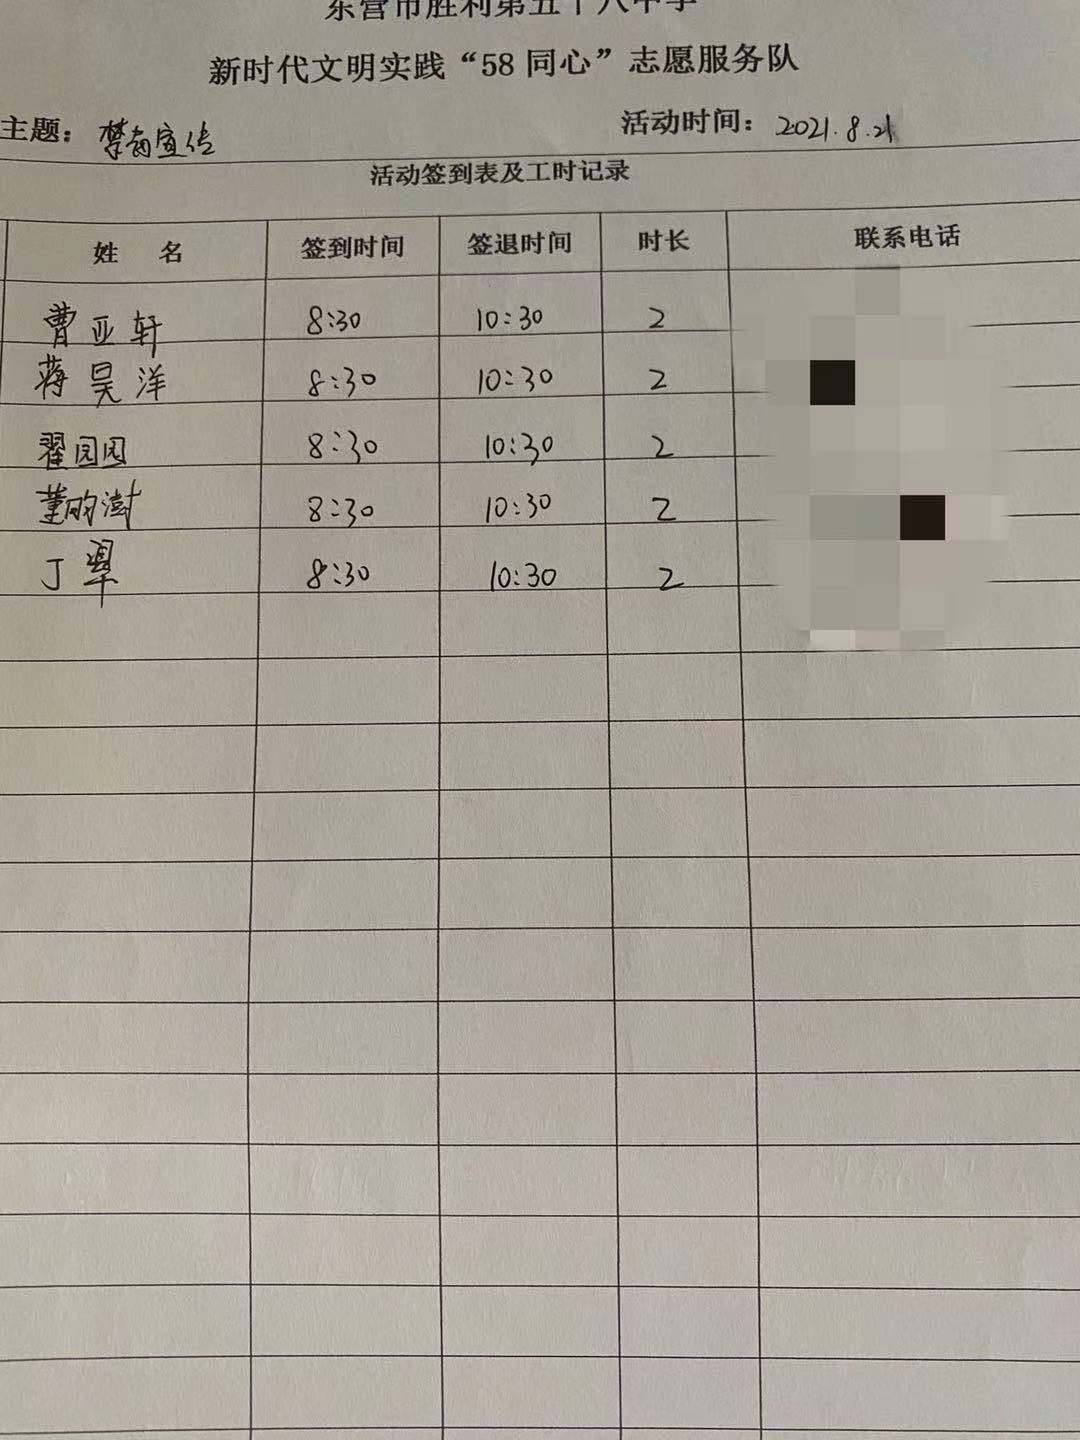 东营市胜利第五十八中学
新时代文明实践“58同心”志愿服务队
主题：禁毒宣传 活动时间：2021.8.21
活动签到表及工时记录
姓 名 签到时间 签退时间 时长 联系电话
曹亚轩 8:30 10:30 2
蒋昊洋 8:30 10:30 2
翟园园 8:30 10:30 2
董昀澍 8:30 10:30 2
丁 8:30 10:30 2